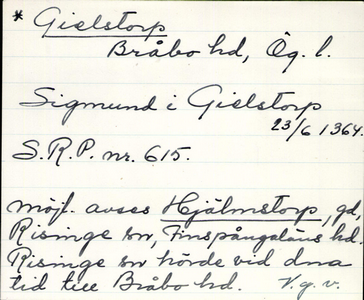 * Gielstorp
Bråbo hd, Ög. l.
Sigmund i Gielstorp
23/6 1364.
S.R.P. nr. 615.
möjl. avses Hjälmstorp, gd,
Risinge sn, Finspångaläns hd.
Risinge sn hörde vid dma
tid till Bråbo hd. V.g.v.